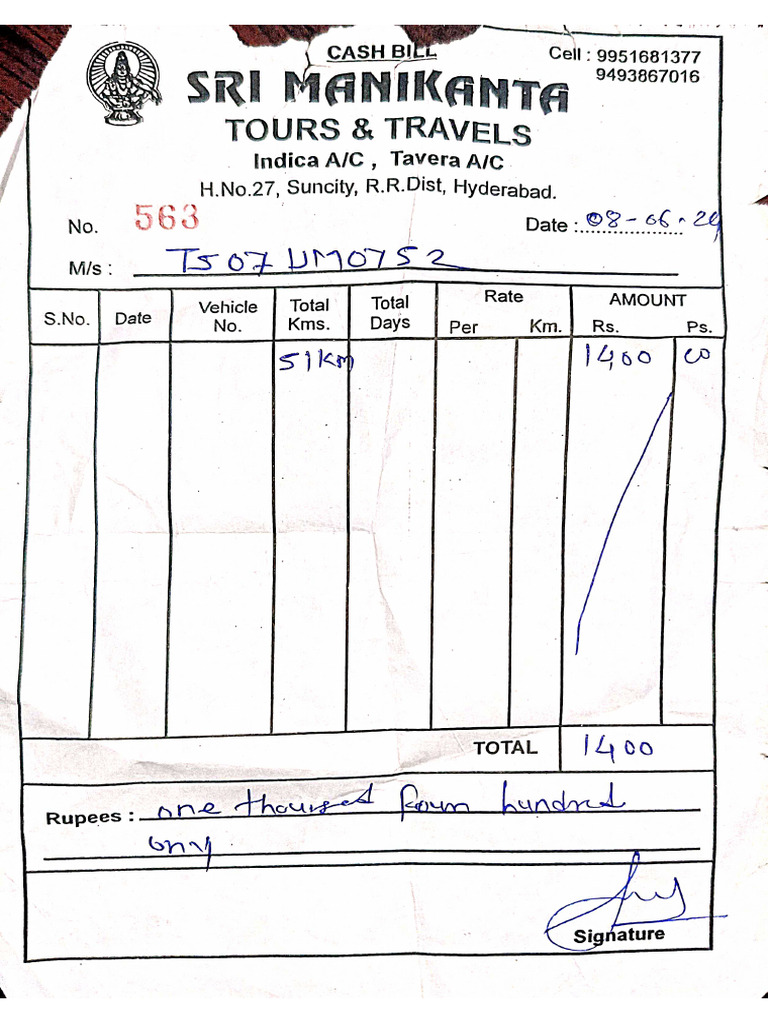 CASH BILL
Cell : 9951681377
9493867016
SRI MANIKANTA
TOURS & TRAVELS
Indica A/C , Tavera A/C
H.No.27, Suncity, R.R.Dist, Hyderabad.
No. 563 Date : 08-06-24
M/s : TS 07 UM0752
S.No. Date Vehicle No. Total Kms. Total Days Rate Per Km. AMOUNT Rs. Ps.
51KM 1400 00
TOTAL 1400
Rupees : one thoused four hundred
only
Signature